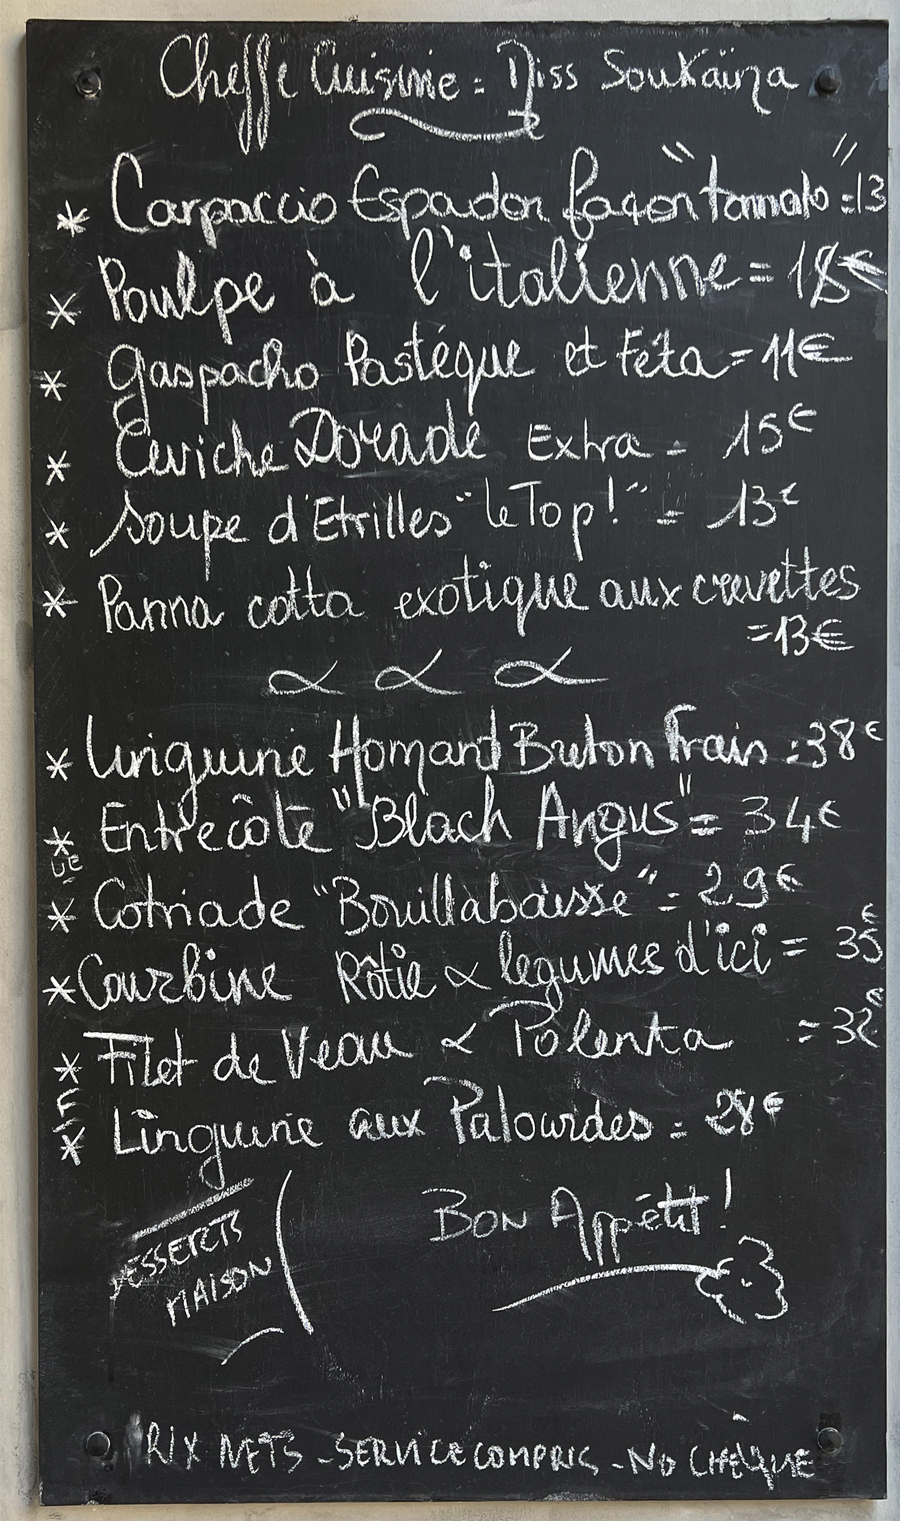 Cheffe Cuisine = Miss Soukaïna
* Carpaccio Espadon façon "tonnato" = 13
* Poulpe à l'italienne = 18€
* Gaspacho Pastèque et Féta = 11€
* Ceviche Dorade Extra = 15€
* Soupe d'Etrilles "le Top!" = 13€
* Panna cotta exotique aux crevettes
= 13€
* Linguine Homard Breton Frais = 38€
* Entrecôte "Black Angus" = 34€
* Cotriade "Bouillabaisse" = 29€
* Courbine Rôtie & légumes d'ici = 35€
* Filet de Veau & Polenta = 32€
* Linguine aux Palourdes = 28€
DESSERTS
MAISON
BON Appétit!
RIX NETS - SERVICE COMPRIS - NO CHÈQUE